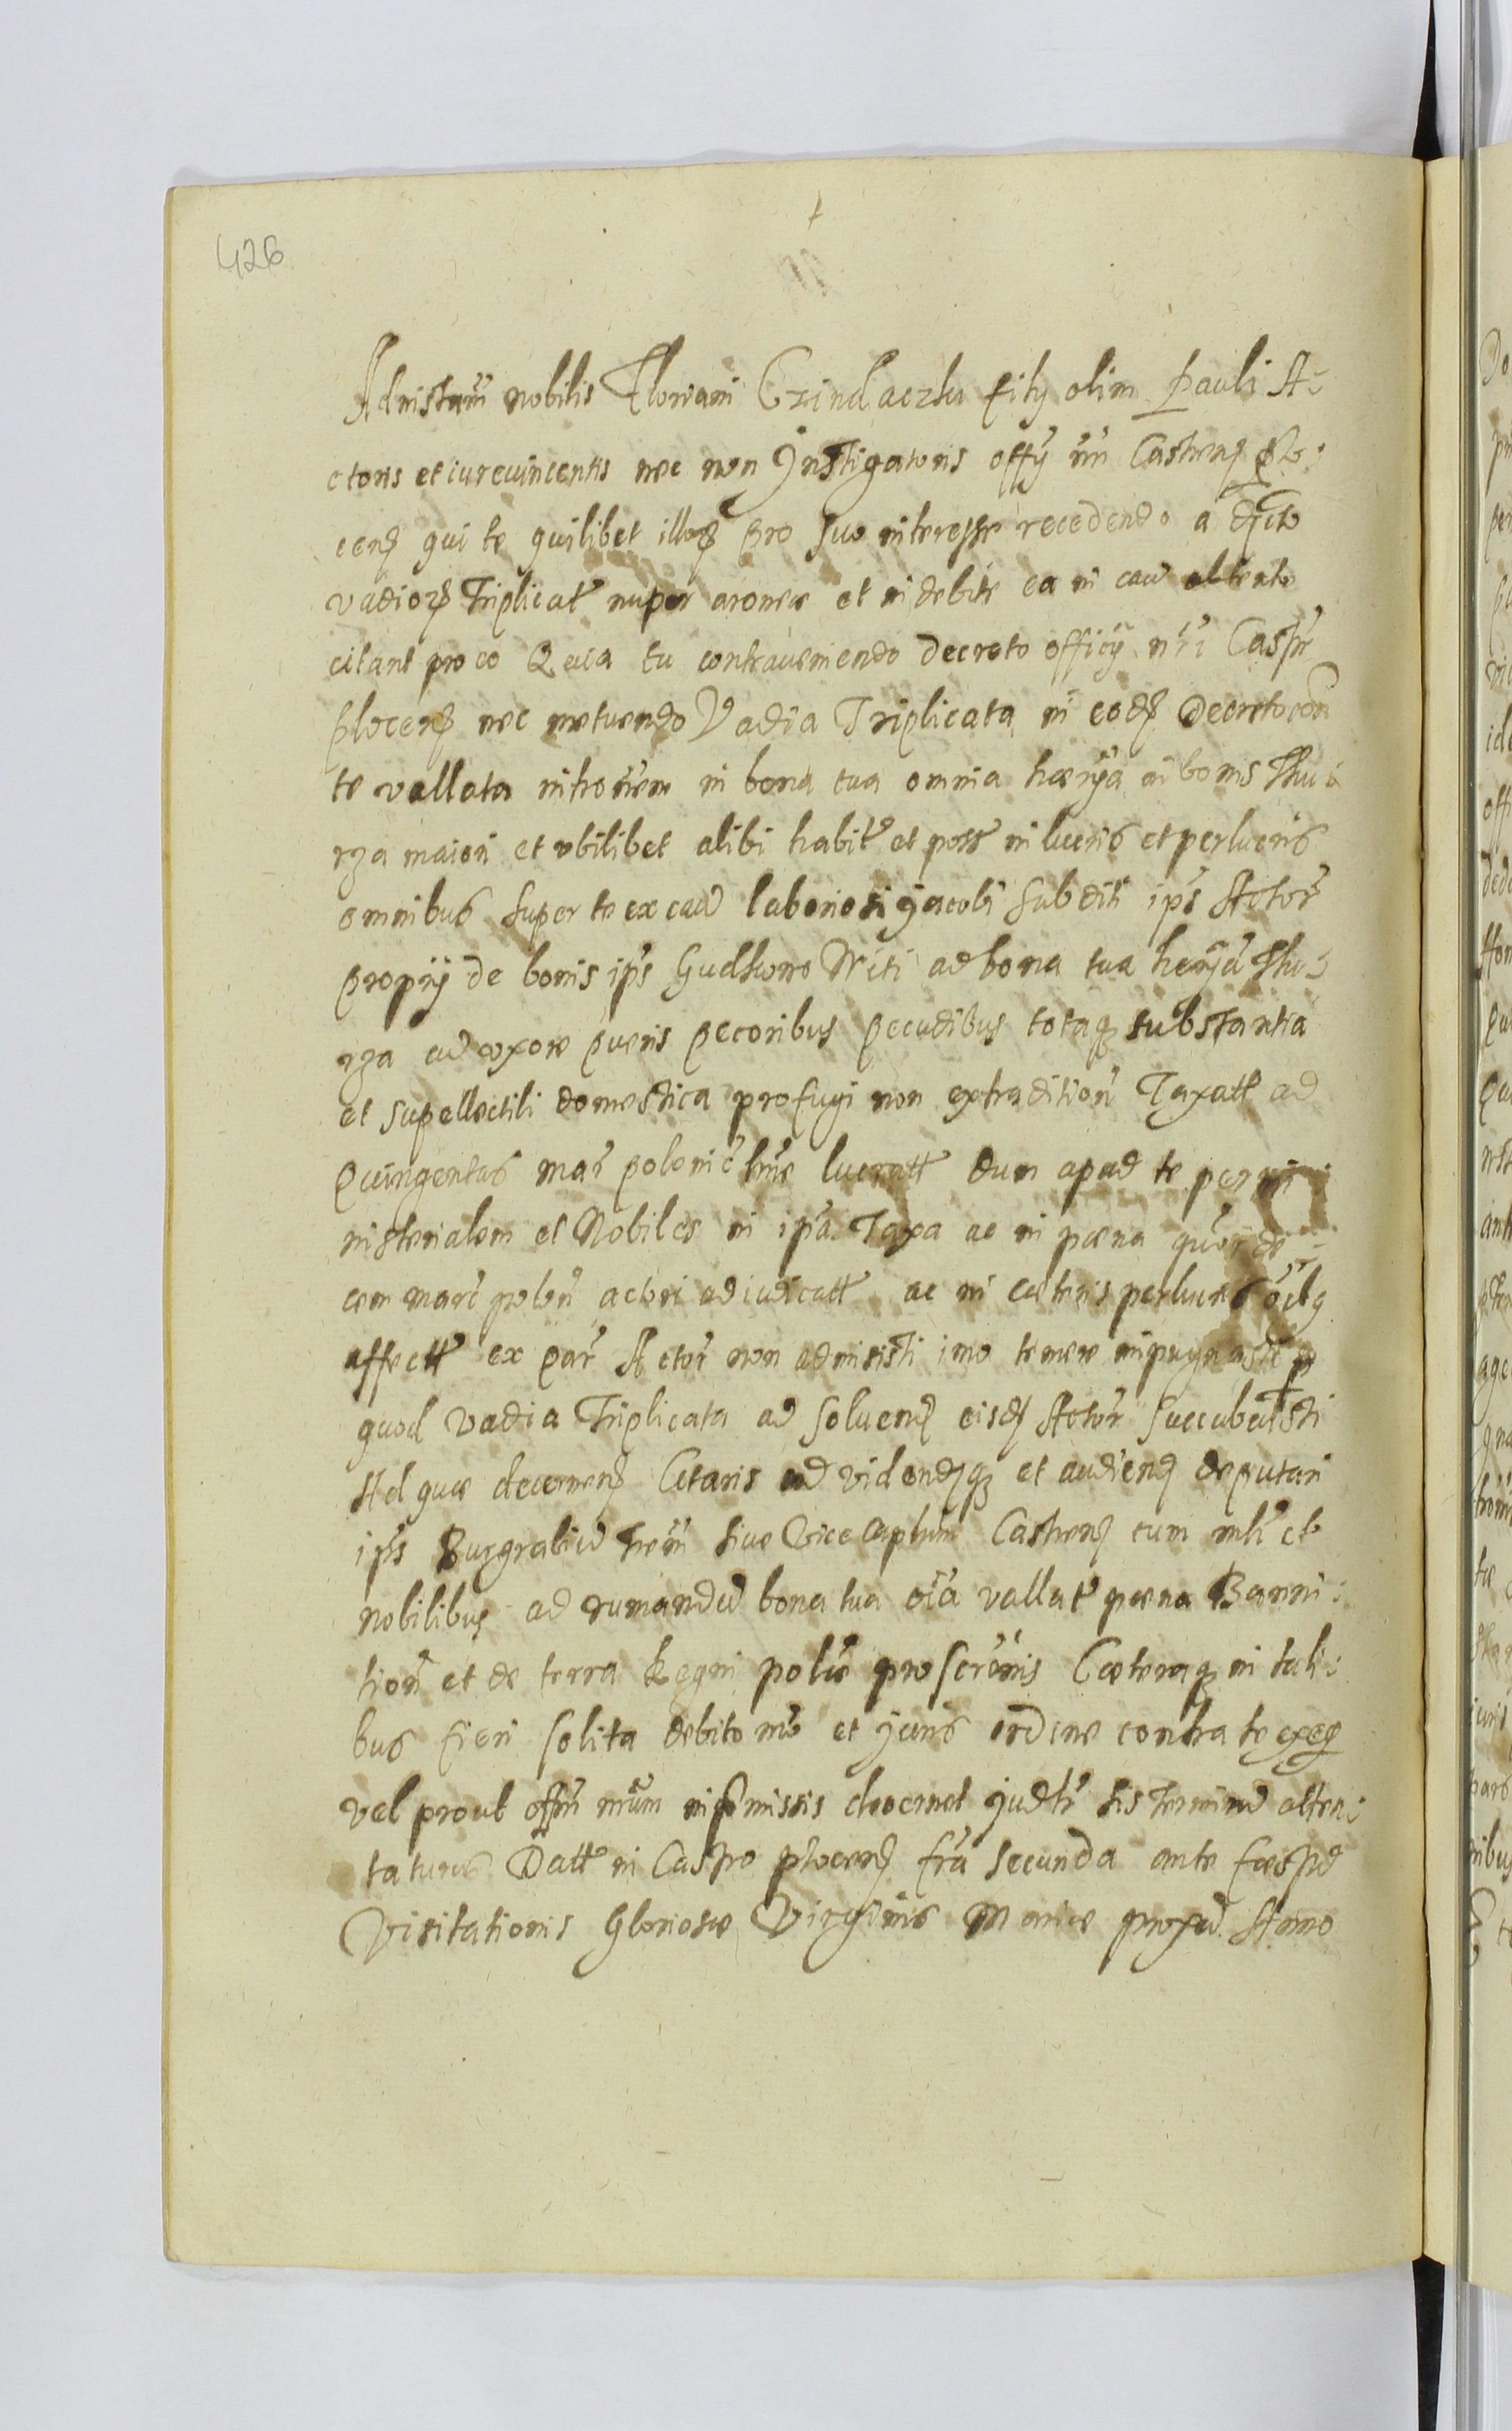 426
Ad nistam̃ nobilis Floriani Czindaczku filŷ olim Pauli A-
ctoris et iurevincentis nec non Jnstigatoris offŷ nr̃i Castren̄ Plo:
cen̄ qui te quilibet illoꝝ pro suo interesse recedendo a
vadioꝝ Triplicat̃ nuper et indebite ea in cau obtento
citant pro eo Quia tu contraveniendo decreto officŷ nr̃i Castr̃
plocen̄ nec metuendo Vadia Triplicata in eod̄ Decreto
te vallata in bona tua omnia hærŷa in bonis Thu
rza maiori et vbilibet alibi habit̃ et poss̃ in lucris et perlucris
omnibus super te ex cau laboriosi jacobi subditi ip̃s Actor̃
proprŷ de bonis ip̃s Gudkowo Witi ad bona tua herŷa Thu-
rza cu vxore pueris pecoribus pecudibus totaq̃ substantia
et supellectili domestica profugi non extradition̄ Taxatt̃ ad
Quingentas mar̃ polonic̃ lucratt̃ dum apud te per mi:
nisterialem et Nobiles in ip̃a Taxa ac in pæna quor̃de:
cem marc̃ polon̄ actori adiudicatt̃ ac in cæteris perlucris oĩbq
affectt̃ ex par̃ Actor̃ non admisisti imo temere inpugnasti p
quod vadia Triplicata ad soluen̄ eisd̄ Actor̃ succubuisti
Ad quæ decernen̄ Citaris ad videndq̃ et audien̄ deputari
ip̃s Burgrabiu sive Vice Capłum Castren̄ cum młi et
nobilibus ad rumandu bona tua oĩa vallat̃ pæna Banni:
tion̄ et de terra Regni polõe proscrõnis Cæteraq̃ in tali:
bus fieri solita debito mõ et juris ordine contra te exeq̃
vel prout offm̃ nr̃um inp̃missis decernet judtr̃ sis terminu atten:
taturus Datt̃ in Castro plocen̄ fr̃a secunda ante fæstu
Visitationis Gloriosæ Virginis Mariæ proxu Anno